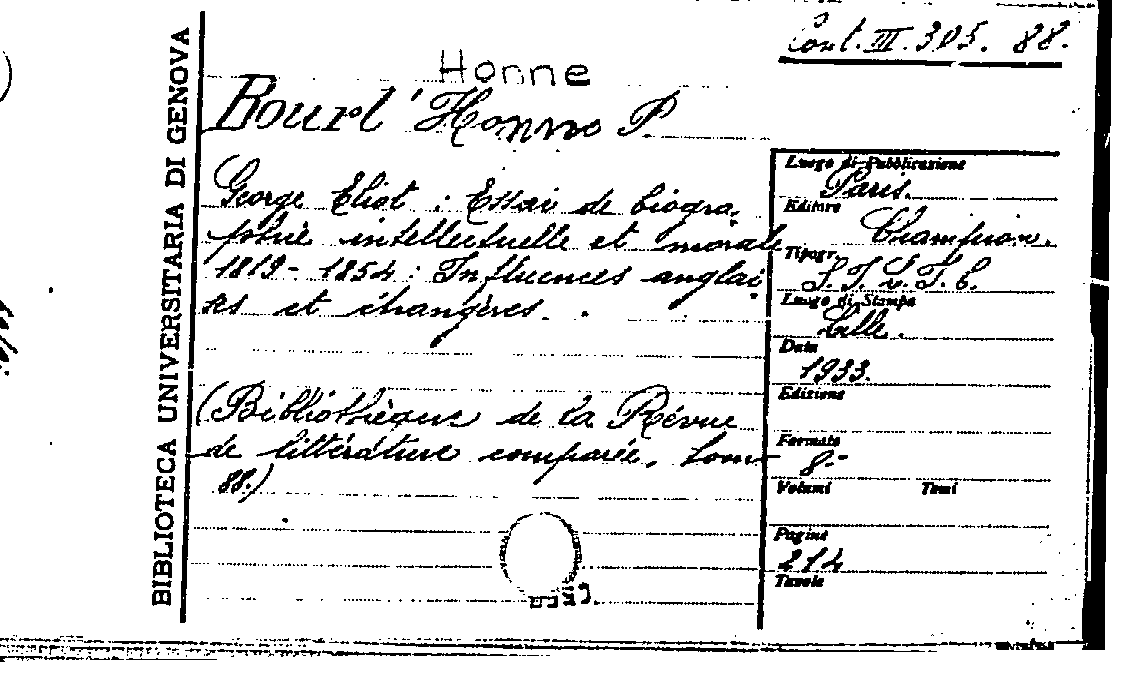 Cont. III. 305. 88.
Honne
Bourl'Honne P
BIBLIOTECA UNIVERSITARIA DI GENOVA
George Eliot : Essai de biogra-
phie intellectuelle et morale
1819-1854 : Influences anglai-
ses et étrangères.
(Bibliothèque de la Révue
de littérature comparée, tome
88.)
Luogo di Pubblicazione
Paris.
Editore
Champion.
Tipogr.
Luogo di Stampa
Lille.
Data
1933.
Edizione
Formato
8-
Volumi Tomi
Pagine
214
Tavole